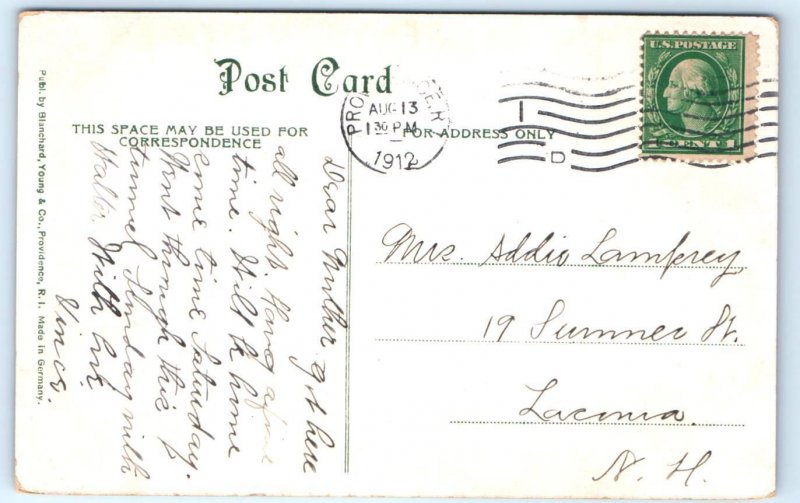 Post Card
THIS SPACE MAY BE USED FOR
CORRESPONDENCE
FOR ADDRESS ONLY
U.S. POSTAGE
1 CENT 1
AUG 13
1 30 PM
1912
D
Publ. by Blanchard, Young & Co., Providence, R. I. Made in Germany.
Dear Mother got here
all right Having a fine
time. Will be home
some time Saturday.
Went through this
tunnel Sunday with
Walter. With love
Vince.
Mrs. Addie Lamprey
19 Summer St.
Laconia
N. H.